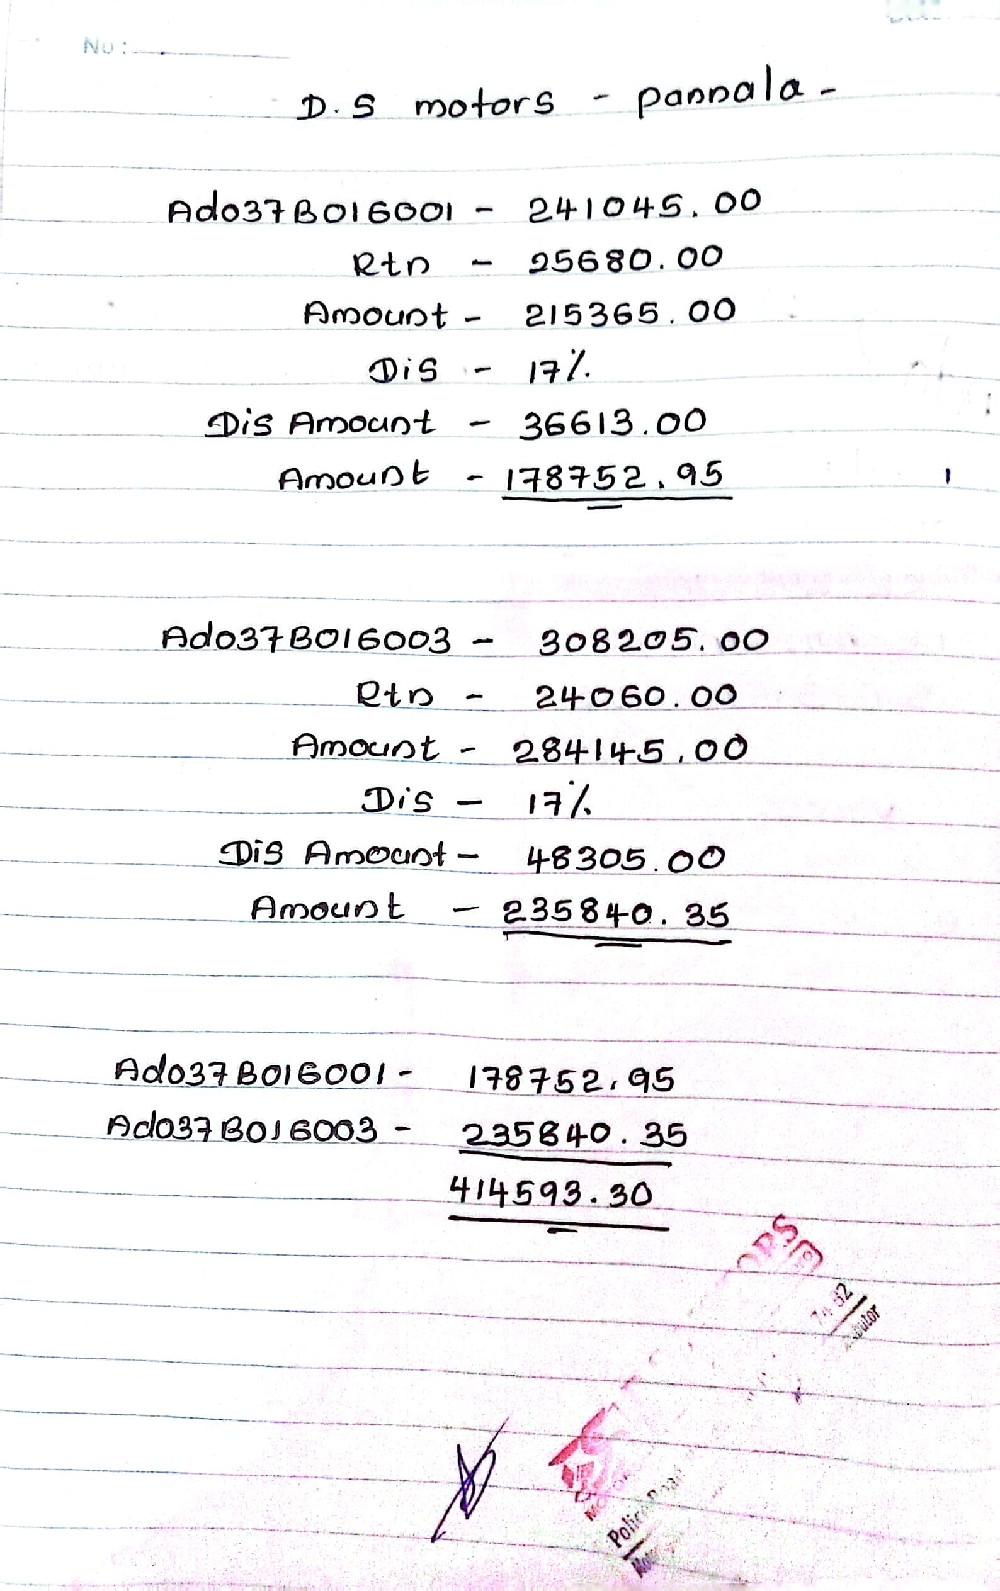 No:
D.S motors - pannala -
Ado37B016001 - 241045.00
Rtn - 25680.00
Amount - 215365.00
Dis - 17%
Dis Amount - 36613.00
Amount - 178752.95
Ado37B016003 - 308205.00
Rtn - 24060.00
Amount - 284145.00
Dis - 17%
Dis Amount - 48305.00
Amount - 235840.35
Ado37B016001 - 178752.95
Ado37B016003 - 235840.35
414593.30